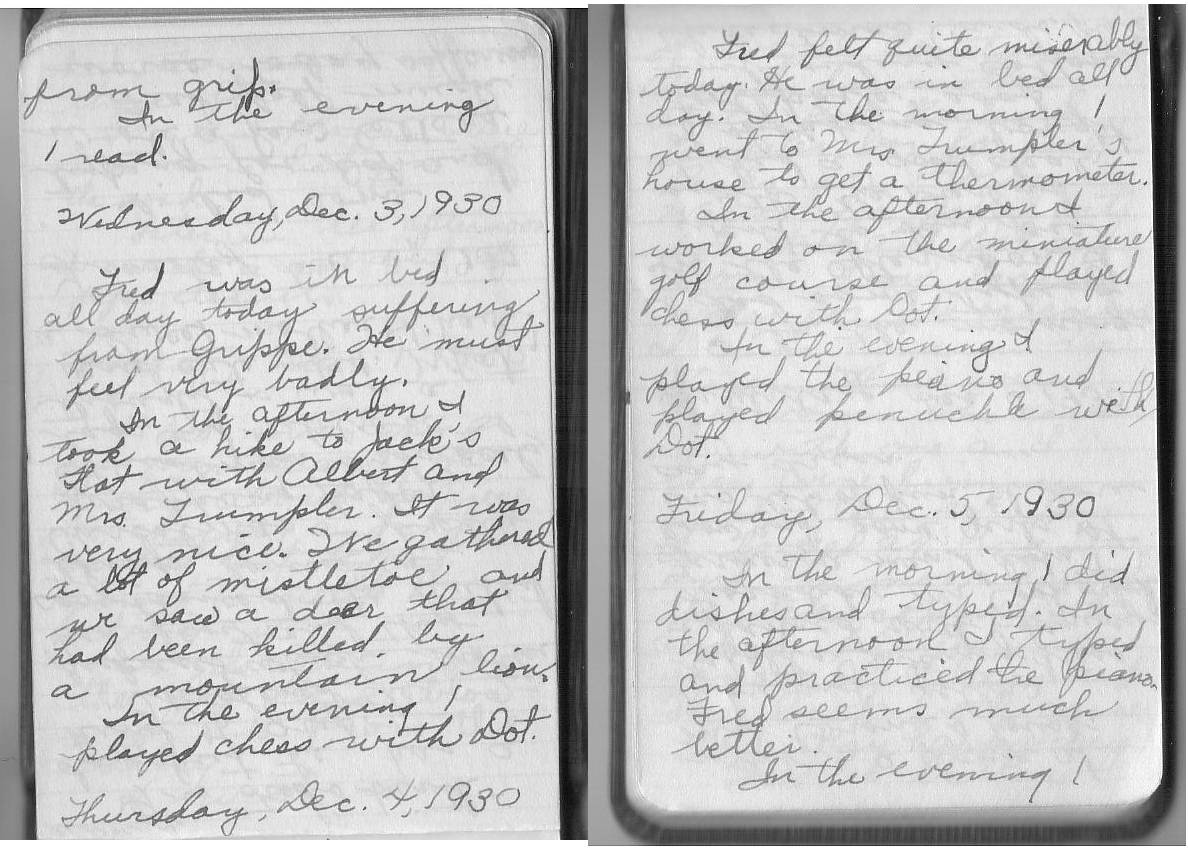 from grip.
In the evening
I read.
Wednesday, Dec. 3, 1930
Fred was in bed
all day today suffering
from Grippe. He must
feel very badly.
In the afternoon I
took a hike to Jack's
Flat with Albert and
Mrs. Trumpler. It was
very nice. We gathered
a lot of mistletoe and
we saw a dear that
had been killed by
a mountain lion.
In the evening I
played chess with Dot.
Thursday, Dec. 4, 1930
Fred felt quite miserably
today. He was in bed all
day. In the morning I
went to Mrs. Trumpler's
house to get a thermometer.
In the afternoon I
worked on the miniature
golf course and played
chess with Dot.
In the evening I
played the piano and
played penuckle with
Dot.
Friday, Dec. 5, 1930
In the morning I did
dishes and typed. In
the afternoon I typed
and practiced the piano.
Fred seems much
better.
In the evening I